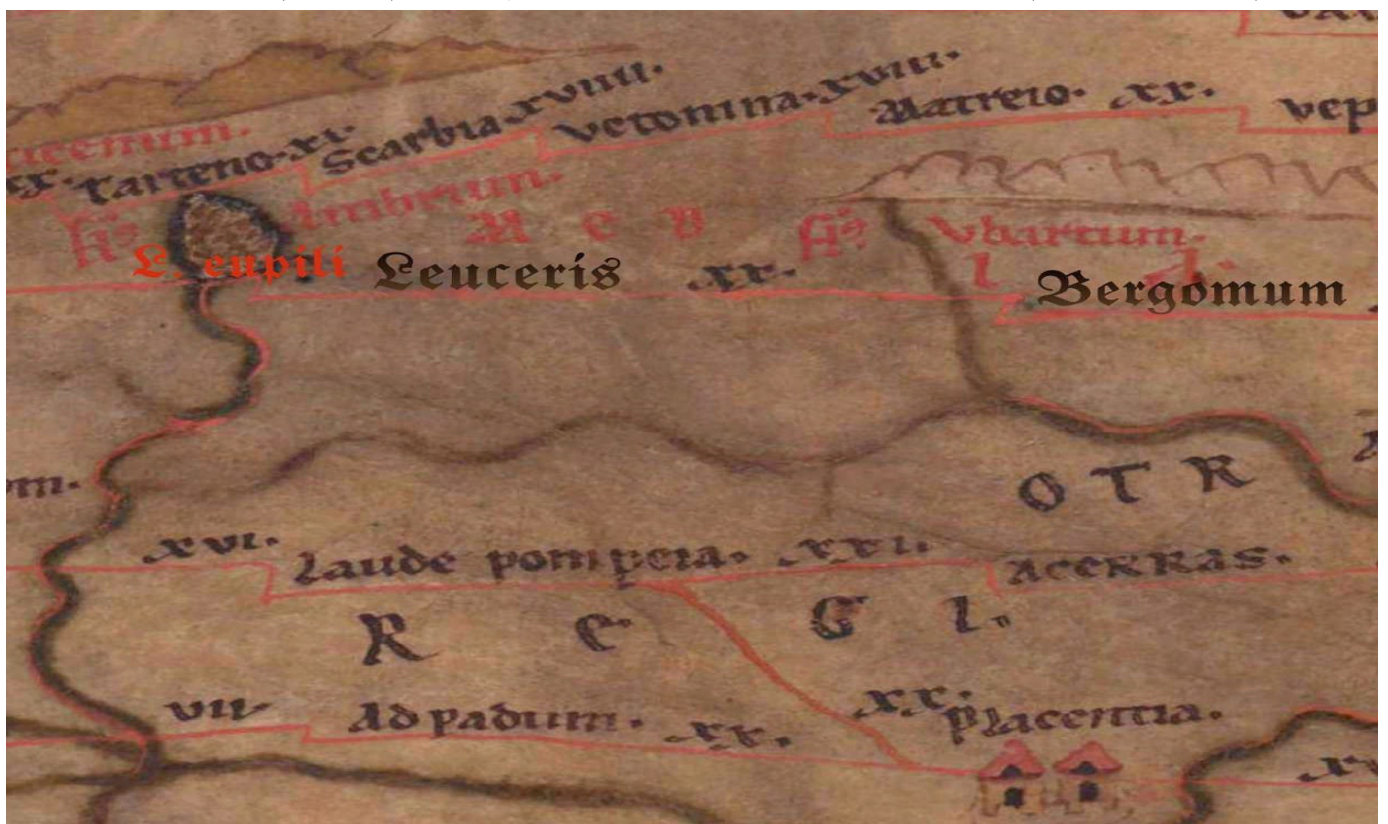 Tarteno. xx
Scarbia xviiii.
vetonina. xviii.
Matreio. xx.
vep
fl̄s
Umbrium.
M e d
fl̄s
Vbartium.
L. eupili
Leuceris
xx.
Bergomum
O T R
m.
xvi.
Laude pompeia.
xxii.
AceRRas.
R e G I.
vii
Ad padum.
xx.
xx.
placentia.